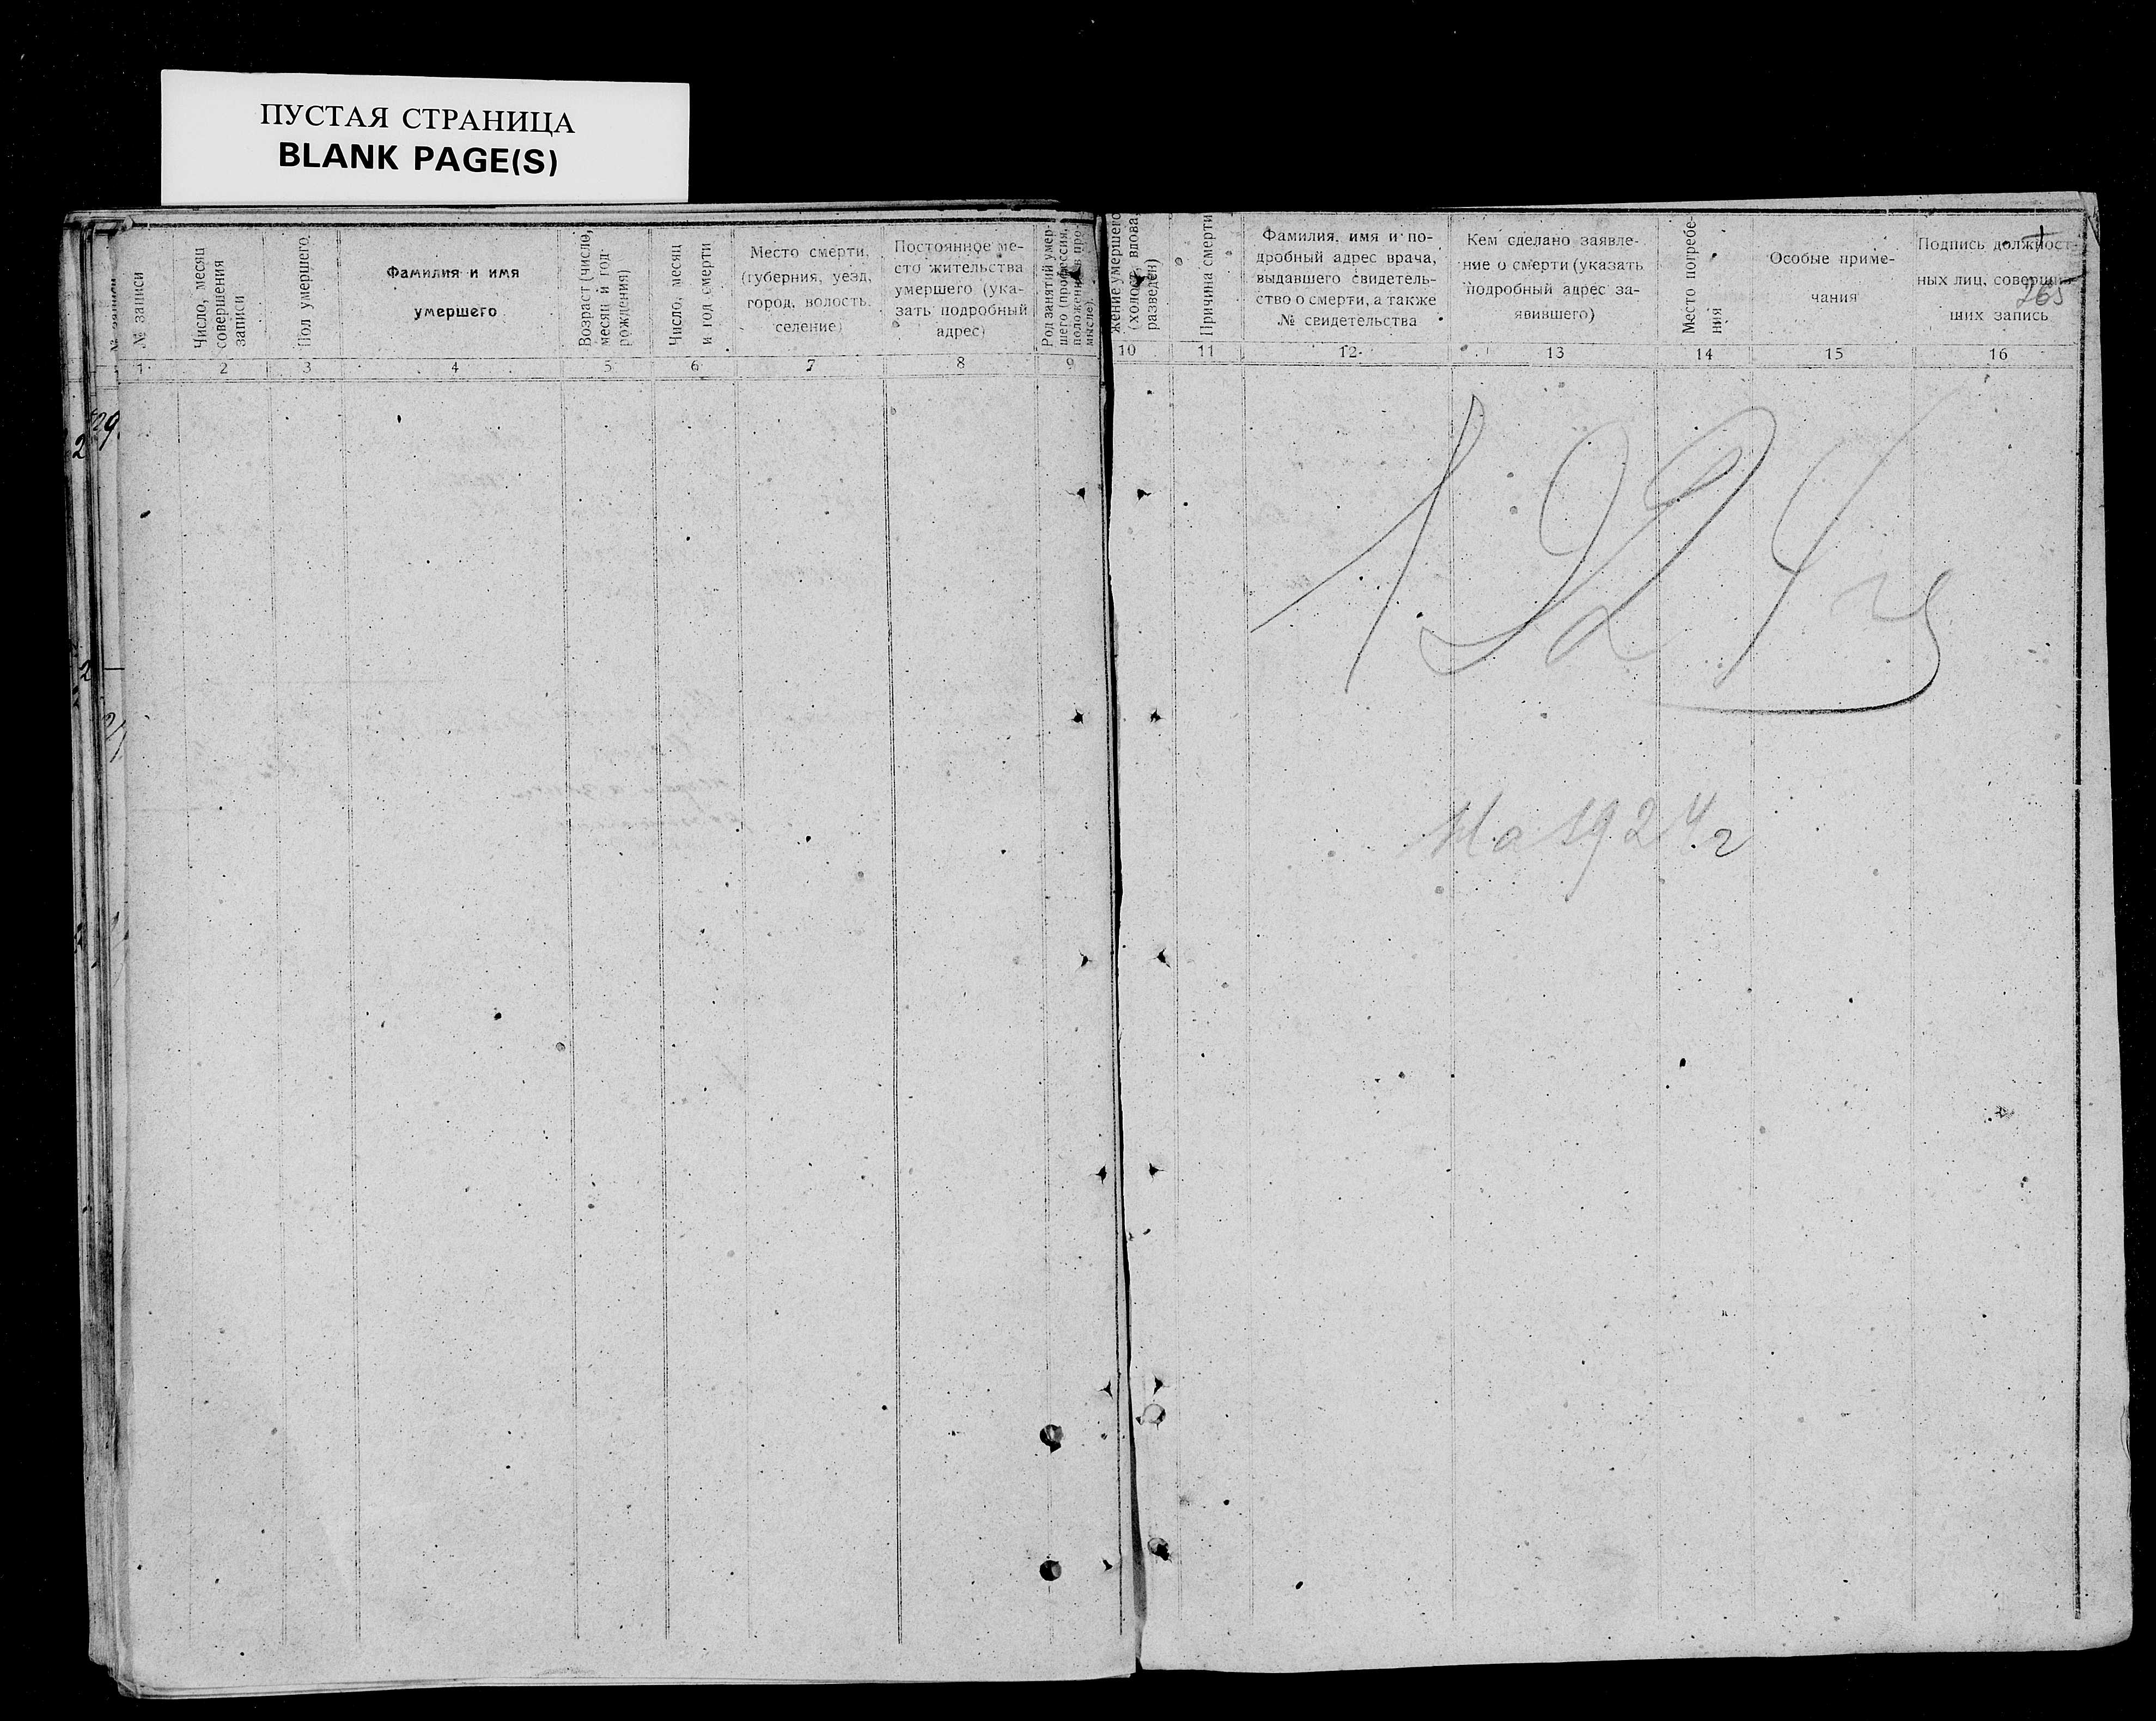 ПУСТАЯ СТРАНИЦА
BLANK PAGE(S)
№ записи
Число, месяц
совершения
записи
Пол умершего
Фамилия и имя
умершего
Возраст (число,
месяц и год
рождения)
Число, месяц
и год смерти
Место смерти,
(губерния, уезд,
город, волость,
селение)
Постоянное ме-
сто жительства
умершего (ука-
зать подробный
адрес)
Род занятий умер-
шего (профессия,
положение в про-
мысле).
жение умершего
(холост, вдова,
разведен)
Причина смерти
Фамилия, имя и по-
дробный адрес врача,
выдавшего свидетель-
ство о смерти, а также
№ свидетельства
Кем сделано заявле-
ние о смерти (указать
подробный адрес за-
явившего)
Место погребе-
ния
Особые приме-
чания
Подпись должност-
ных лиц, соверши-
ших запись
265
1 2 3 4 5 6 7 8 9 10 11 12 13 14 15 16
29.
2
1924 г
На 1924 г